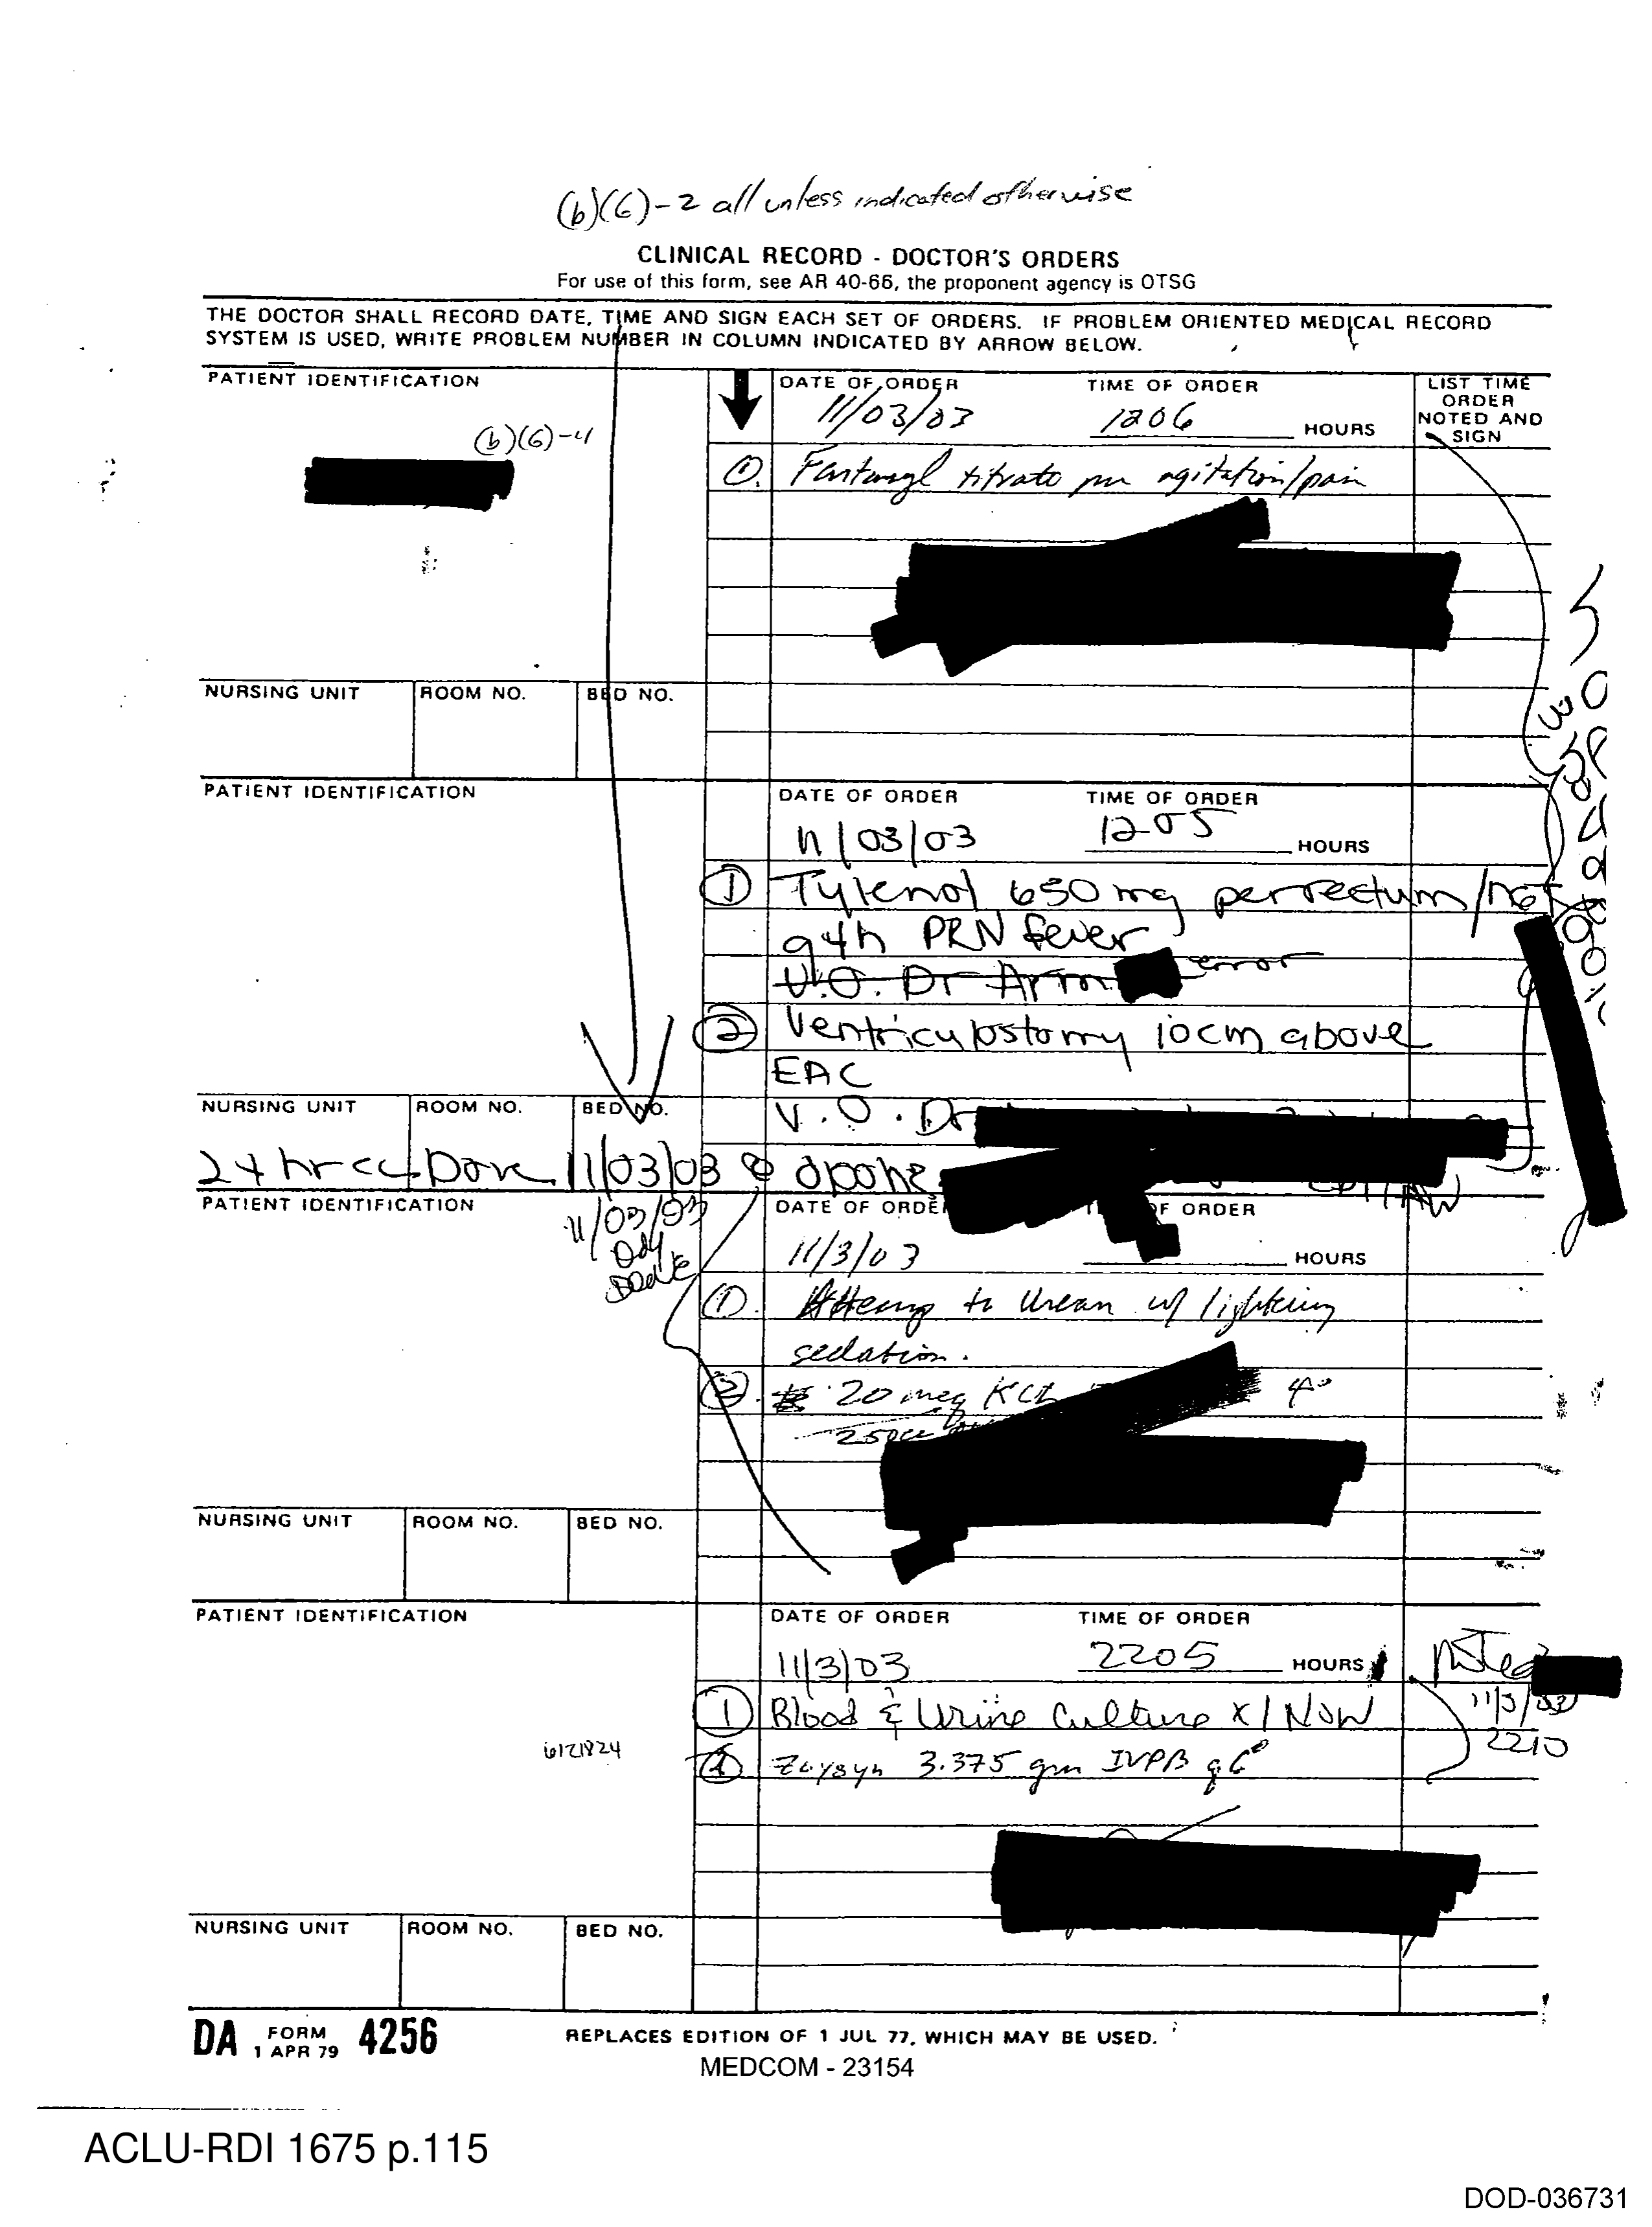 (b)(6)-2 all unless indicated otherwise
CLINICAL RECORD - DOCTOR'S ORDERS
For use of this form, see AR 40-66, the proponent agency is OTSG
THE DOCTOR SHALL RECORD DATE, TIME AND SIGN EACH SET OF ORDERS. IF PROBLEM ORIENTED MEDICAL RECORD
SYSTEM IS USED, WRITE PROBLEM NUMBER IN COLUMN INDICATED BY ARROW BELOW.
PATIENT IDENTIFICATION
DATE OF ORDER
TIME OF ORDER
LIST TIME
ORDER
NOTED AND
SIGN
11/03/03
1206
HOURS
(b)(6)-4
① titrate prn agitation/pain
NURSING UNIT
ROOM NO.
BED NO.
PATIENT IDENTIFICATION
DATE OF ORDER
TIME OF ORDER
11/03/03
1205
HOURS
① Tylenol 650 mg per rectum/
q4h PRN fever
V.O. Dr error
② Ventriculostomy 10cm above
EAC
NURSING UNIT
ROOM NO.
BED NO.
V.O. Dr
24 hr cc Done 11/03/03 @
PATIENT IDENTIFICATION
DATE OF ORDER
OF ORDER
11/03/03
11/3/03
HOURS
① to wean w/
sedation.
② 20 meq KCL 4°
250cc
NURSING UNIT
ROOM NO.
BED NO.
PATIENT IDENTIFICATION
DATE OF ORDER
TIME OF ORDER
11/3/03
2205
HOURS
Noted
11/3/03
2210
① Blood & Urine Culture x1 NOW
② Zosyn 3.375 gm IVPB q6°
NURSING UNIT
ROOM NO.
BED NO.
DA FORM 4256
1 APR 79
REPLACES EDITION OF 1 JUL 77, WHICH MAY BE USED.
MEDCOM - 23154
ACLU-RDI 1675 p.115
DOD-036731